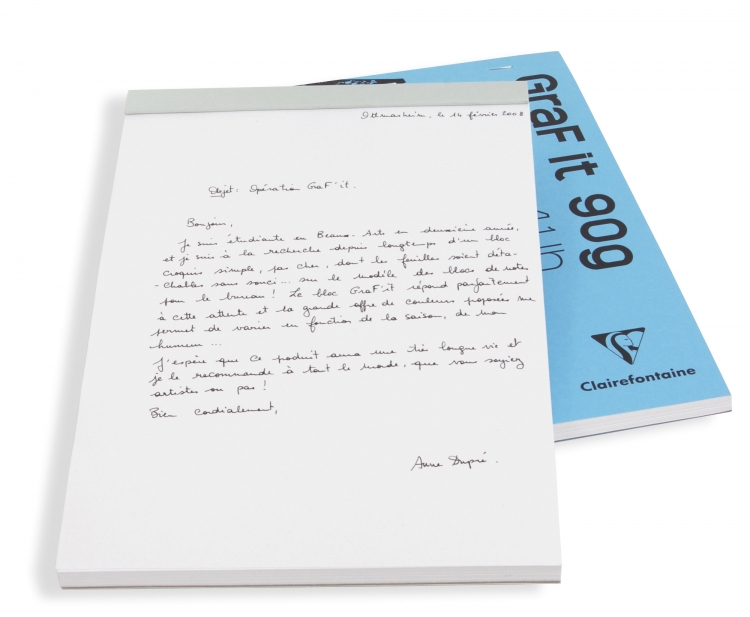 Ottmarsheim, le 14 février 2008
Objet: Opération GraF'it.
Bonjour,
je suis étudiante en Beaux-Arts en deuxième année,
et je suis à la recherche depuis longtemps d'un bloc
croquis simple, pas cher, dont les feuilles soient déta-
-chables sans souci... sur le modèle des blocs de notes
pour le bureau! Le bloc GraF'it répond parfaitement
à cette attente et la grande offre de couleurs proposées me
permet de varier en fonction de la saison, de mon
humeur...
J'espère que ce produit aura une très longue vie et
je le recommande à tout le monde, que vous soyiez
artistes ou pas!
Bien cordialement,
Anne Dupré.
GraF it 90g
Clairefontaine